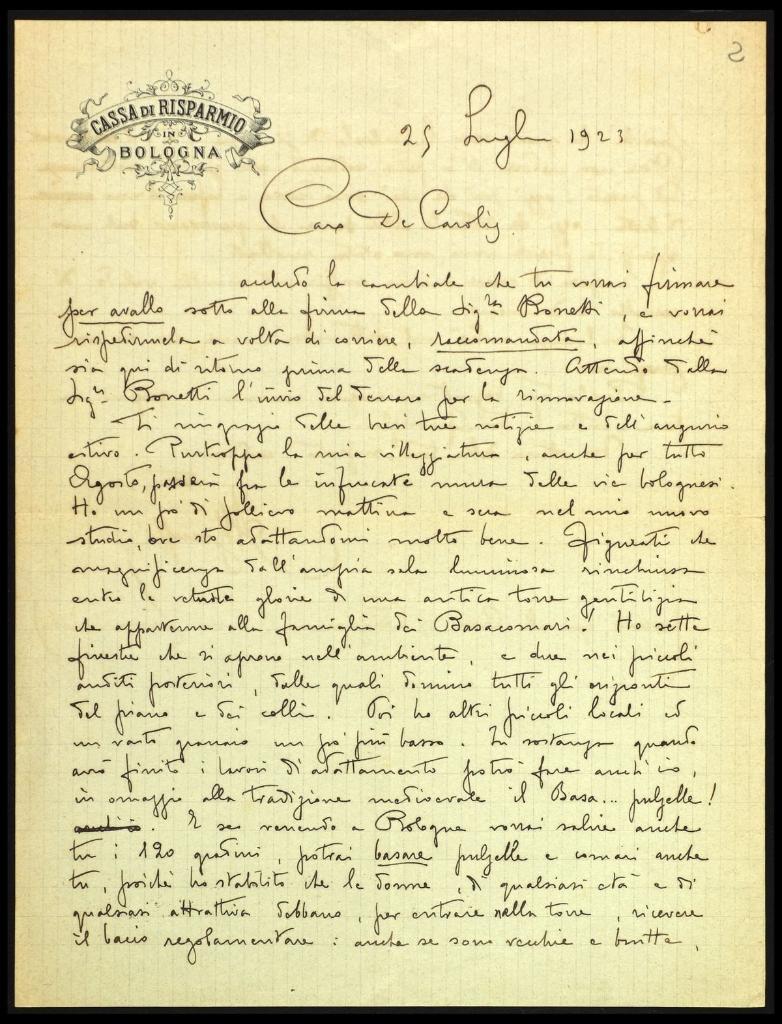 2
CASSA DI RISPARMIO
IN
BOLOGNA
25 Luglio 1923
Caro De Carolis
accludo la cambiale che tu vorrai firmare
per avallo sotto alla firma della Sig.ra Bonetti, e vorrai
rispedirmela a volta di corriere, raccomandata, affinché
sia qui di ritorno prima della scadenza. Attendo dalla
Sig.ra Bonetti l'invio del denaro per la rinnovazione.
Ti ringrazio delle brevi tue notizie e dell'augurio
estivo. Purtroppo la mia villeggiatura, anche per tutto
Agosto, passerà fra le infuocate mura delle vie bolognesi.
Ho un pò di sollievo mattina e sera nel mio nuovo
studio, ove sto adattandomi molto bene. Figurati che
magnificenza dall'ampia sala luminosa rinchiusa
entro le vetuste glorie di una antica torre gentilizia
che appartenne alla famiglia dei Basacomari! Ho sette
finestre che si aprono nell'ambiente, e due nei piccoli
anditi posteriori, dalle quali domino tutti gli orizzonti
del piano e dei colli. Poi ho altri piccoli locali ed
un vasto granaio un pò più basso. In sostanza quando
avrò finito i lavori di adattamento potrò fare anch'io,
in omaggio alla tradizione medioevale il Basa... pulzelle!
E se venendo a Bologna vorrai salire anche
tu i 120 gradini, potrai basare pulzelle e comari anche
tu, poiché ho stabilito che le donne, di qualsiasi età e di
qualsiasi attrattiva debbano, per entrare nella torre, ricevere
il bacio regolamentare: anche se sono vecchie e brutte.